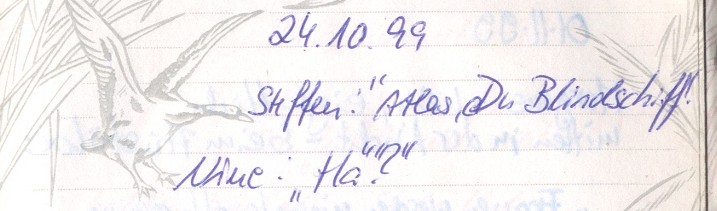 24.10.99
Steffen: "Atlas, Du Blindschiff!
Nine: „Hä"?"